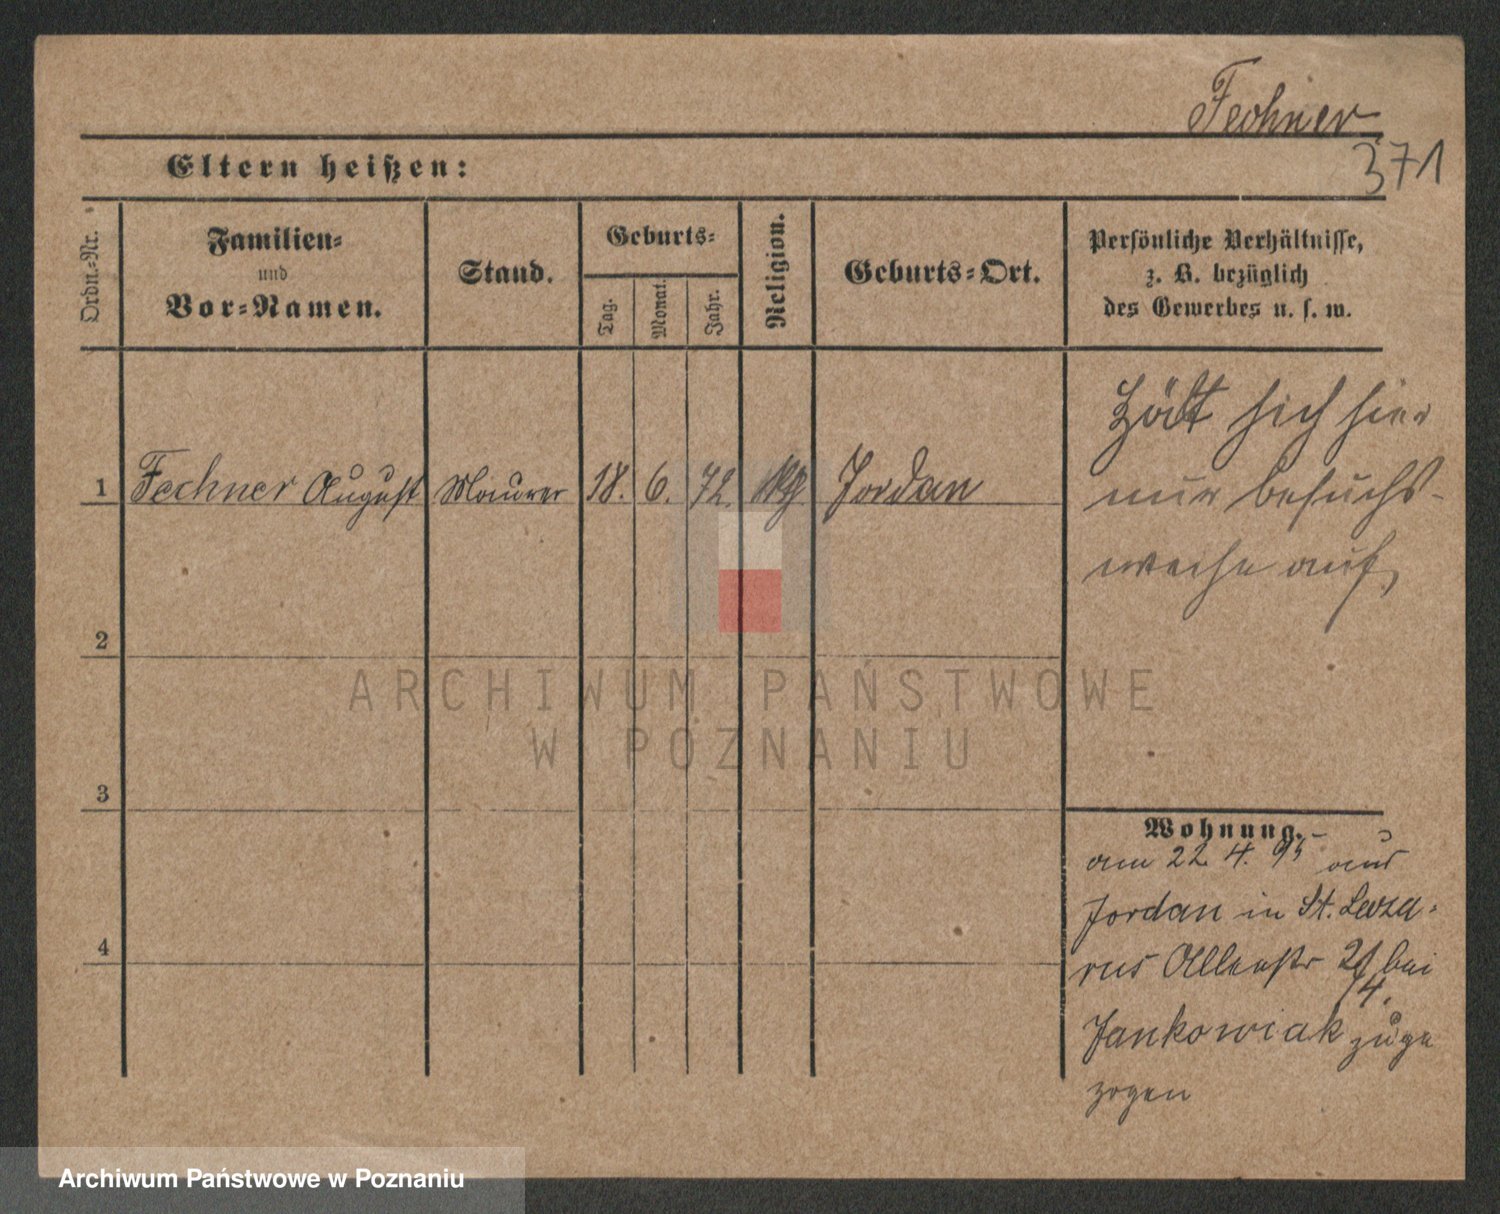 Fechner
371
Eltern heißen:
Ordn.-Nr.
Familien-
und
Vor-Namen.
Stand.
Geburts-
Tag.
Monat.
Jahr.
Religion.
Geburts-Ort.
Persönliche Verhältnisse,
z. B. bezüglich
des Gewerbes u. s. w.
1 Fechner August Maurer 18. 6. 72. Jordan
Hält sich hier
nur besuchs-
weise auf,
2
3
4
Wohnung.
am 22. 4. 95 aus
Jordan in St. Laza-
rus Allerstr 21 bei
Jankowiak zuge
zogen
ARCHIWUM PAŃSTWOWE
W POZNANIU
Archiwum Państwowe w Poznaniu